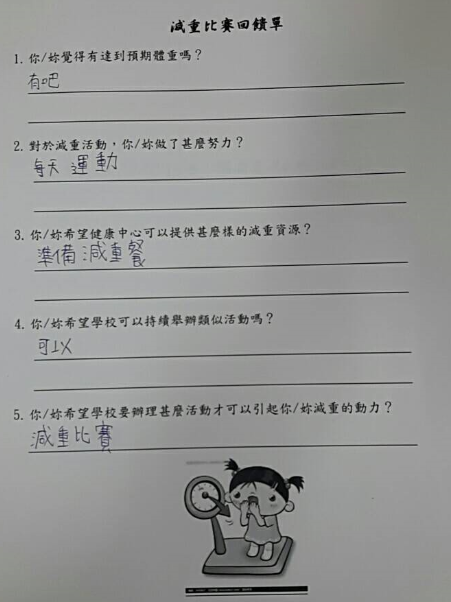 減重比賽回饋單
1. 你/妳覺得有達到預期體重嗎？
有吧
2. 對於減重活動，你/妳做了甚麼努力？
每天 運動
3. 你/妳希望健康中心可以提供甚麼樣的減重資源？
準備減重餐
4. 你/妳希望學校可以持續舉辦類似活動嗎？
可以
5. 你/妳希望學校要辦理甚麼活動才可以引起你/妳減重的動力？
減重比賽